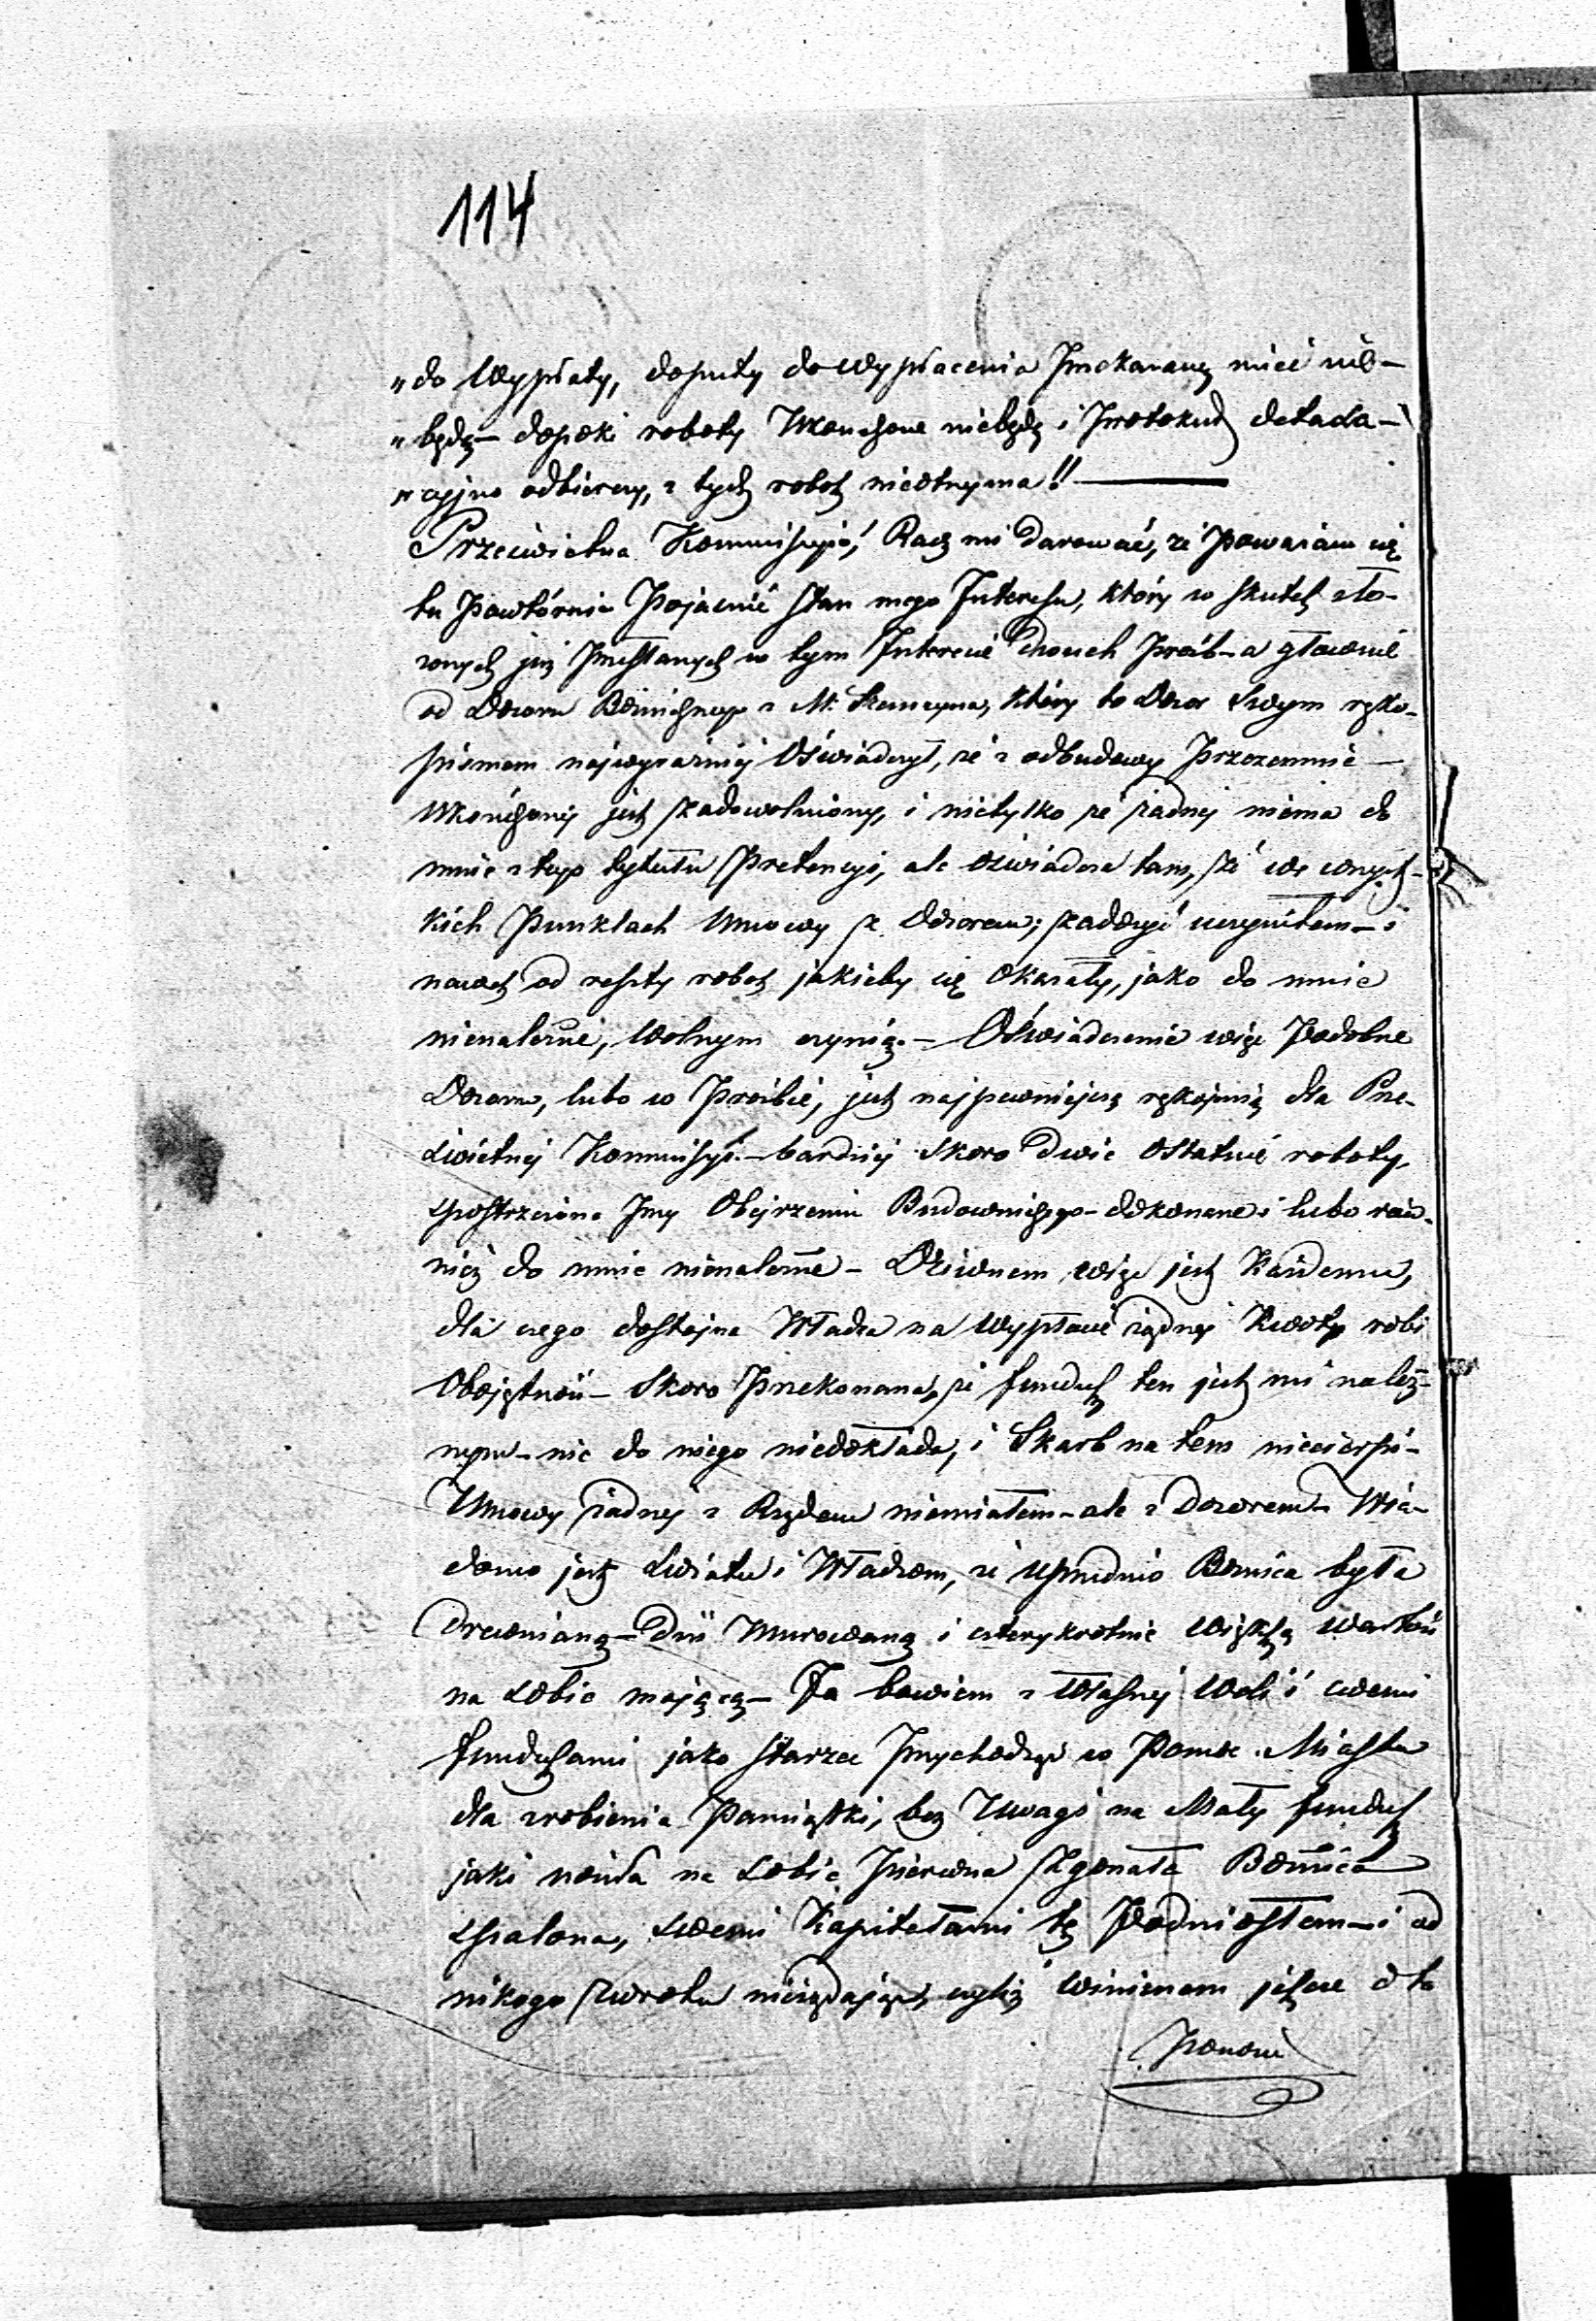 114
"do Wypłaty, dopuky do wypłacenia Przekazaney mieć nie-
"będę – dopoki roboty Wkonczone niebędą i Protokuł detaxa-
"cyjno odbiorczy, z tych robot nieotrzyma!!
Prześwietna Kommissyio! Racz mi Darować, że Poważam się
tu Powtórnie Pojaśnić stan mego Interessu, który w skutek zło-
żonych już Przesłanych w tym Interesie dwuch Prośb – a głównie
od Dozoru Bóżnicznego z M. który to Dozor Swym ręko-
pismem najwyraźniej Oświadczył, że z odbudowy Przezemnie
Wkończonej jest zadowolniony, i nietylko że żadnej niema do
mnie z tego tytułu Pretensyi, ale oświadcza tam, że we wszyst-
kich Punktach Umowy z Dozorem, zadosyć uczyniłem – i
nawet od reszty robot jakieby się Okazały, jako do mnie
nienależne, Wolnym czynią. – Oświadczenie więc Podobne
Dozoru, lubo w Prośbie, jest najpewniejszą rękojmią dla Prze-
świetnej Kommissyi – bardziej Skoro dwie Ostatnie roboty,
spostrzeżone Przy Obejrzeniu Budowniczego – dokonane i lubo rów-
nież do mnie nienależne – Dziwnem więc jest Każdemu,
dla czego dostojna Władza na Wypłacie żądnej Kwoty robi
Obojętność – Skoro Przekonana, że fundusz ten jest mi należ-
nym – nic do niego niedokłada, i Skarb na tem niecierpi –
Umowy żadnej z Rządem niemiałem – ale z Dozorem – Wia-
domo jest Światu i Władzom, że uprzednio Bóżnica była
Drewnianą – Dziś Murowaną i czterykrotnie Większą Wartość
na Sobie mającą – Ja bowiem z Własnej Woli i swemi
funduszami jako Starzec Przychodząc w Pomoc Miastu
dla zrobienia Pamiątki, bez Uwagi na Mały fundusz
jaki nosiła na Sobie Pierwsza Zgorzała Bóżnica
Spalona, Swemi Kapitałami tę Podniosłem – i od
nikogo zwrotu nieżądając, czyliż Winienem jeszcze o to
Ponosić